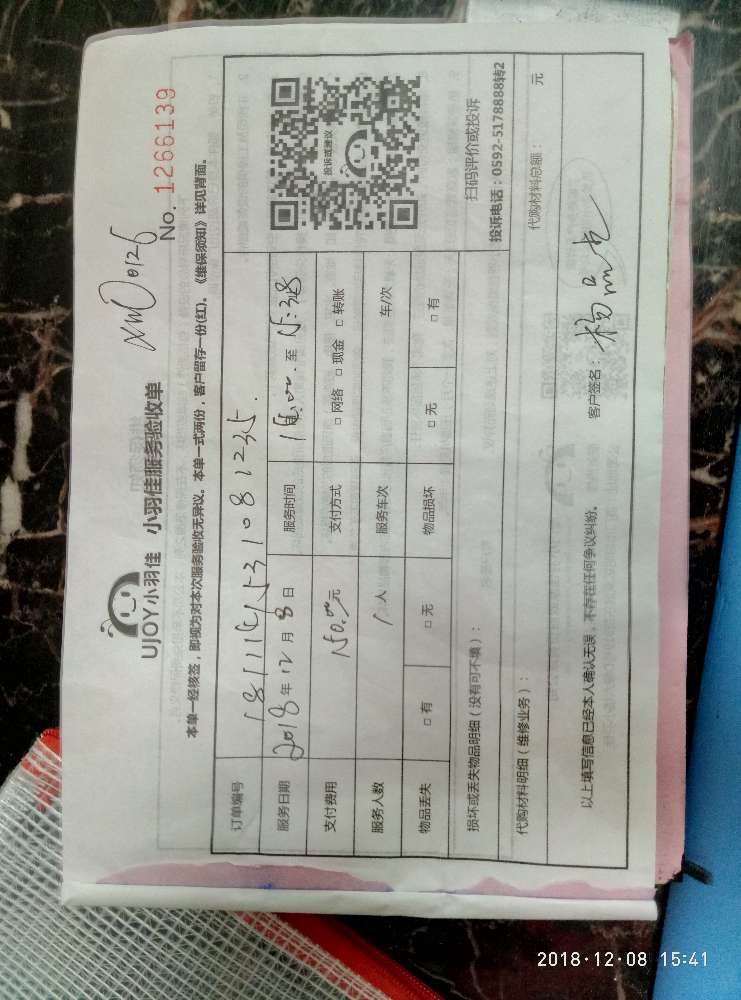 UJOY小羽佳 小羽佳服务验收单
xm00126
No. 1266139
本单一经核签，即视为对本次服务验收无异议。本单一式两份，客户留存一份(红)。《维保须知》详见背面。
订单编号
服务日期 2018年12月8日 服务时间 至 15:38
支付费用 150.00元 支付方式 □ 网络 □ 现金 □ 转账
服务人数 1人 服务车次 车/次
物品丢失 □ 有 □ 无 物品损坏 □ 无 □ 有
投诉或建议
扫码评价或投诉
投诉电话：0592-5178888转2
损坏或丢失物品明细（没有可不填）：
代购材料明细（维修业务）： 代购材料总额： 元
以上填写信息已经本人确认无误，不存在任何争议纠纷。 客户签名：
2018·12·08 15:41